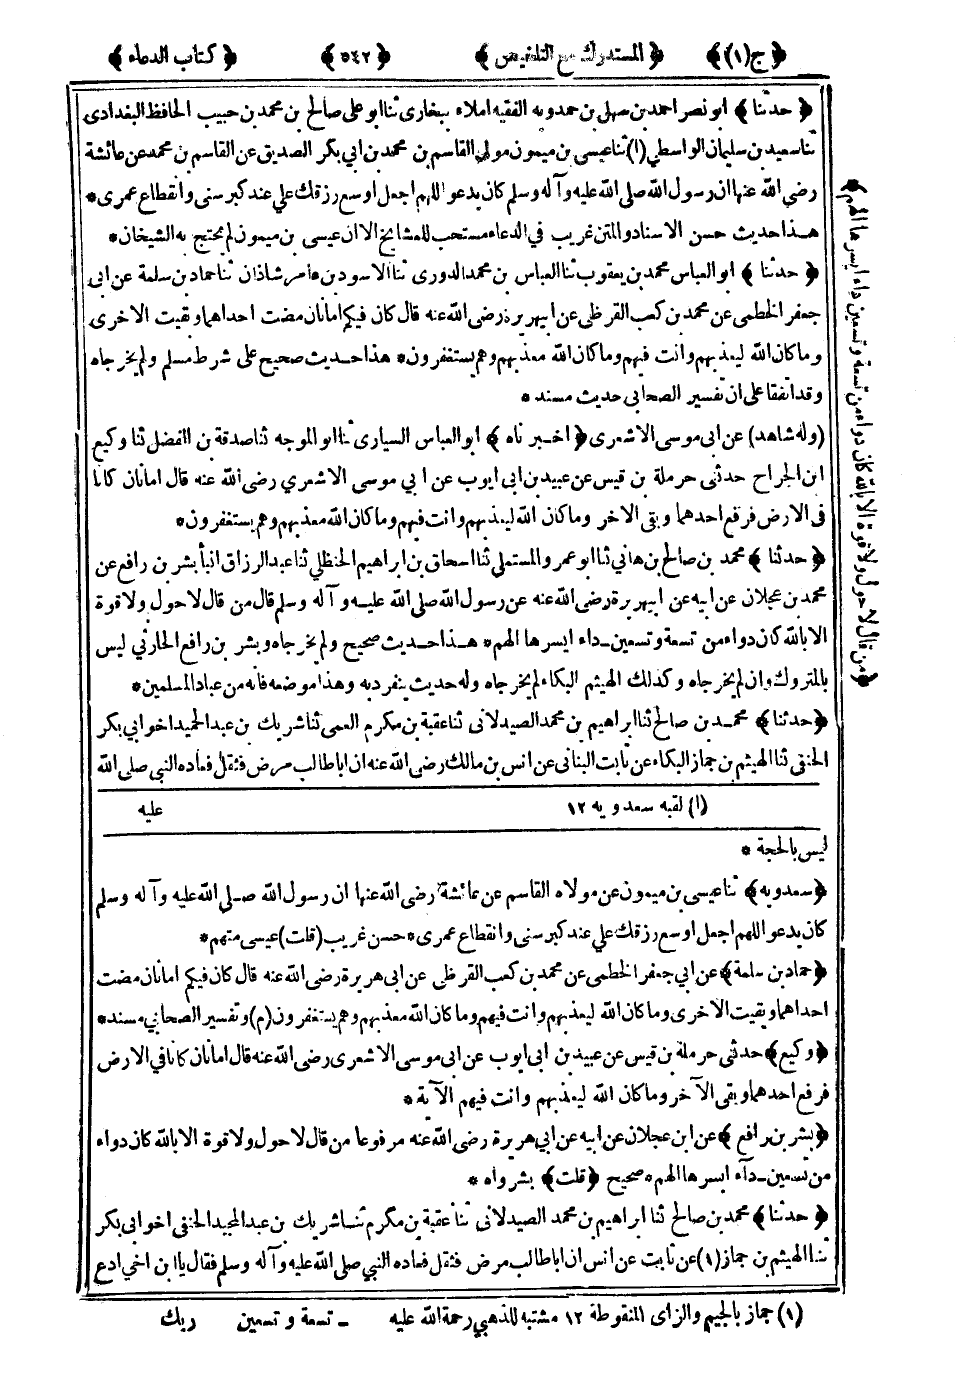 ﴿ ج(١) ﴾ ﴿ المستدرك مع التلخيص ﴾ ﴿ ٥٤٢ ﴾ ﴿ كتاب الدعاء ﴾
﴿ حدثنا ﴾ ابو نصر احمد بن سهل بن حمدويه الفقيه املاء ببخارى ثنا ابو على صالح بن محمد بن حبيب الحافظ البغدادى
ثنا سعيد بن سليمان الواسطي (١) ثنا عيسى بن ميمون مولى القاسم بن محمد بن ابي بكر الصديق عن القاسم بن محمد عن عائشة
رضى الله عنها ان رسول الله صلى الله عليه وآله وسلم كان يدعو اللهم اجعل اوسع رزقك علي عند كبر سنى وانقطاع عمرى *
هذا حديث حسن الاسناد والمتن غريب في الدعاء مستحب للمشايخ الا ان عيسى بن ميمون لم يحتج به الشيخان *
﴿ حدثنا ﴾ ابو العباس محمد بن يعقوب ثنا العباس بن محمد الدورى ثنا الاسود بن عامر شاذان ثنا حماد بن سلمة عن ابى
جعفر الخطمى عن محمد بن كعب القرظى عن ابيهريرة رضى الله عنه قال كان فيكم امانان مضت احداهما وبقيت الاخرى
وما كان الله ليعذبهم وانت فيهم وما كان الله معذبهم وهم يستغفرون * هذا حديث صحيح على شرط مسلم ولم يخرجاه
وقد اتفقا على ان تفسير الصحابى حديث مسند *
(وله شاهد) عن ابى موسى الاشعرى ﴿ اخبرناه ﴾ ابو العباس السيارى ثنا ابو الموجه ثنا صدقة بن الفضل ثنا وكيع
ابن الجراح حدثنى حرملة بن قيس عن عبيد بن ابى ايوب عن ابي موسى الاشعري رضى الله عنه قال امانان كانا
فى الارض فرفع احدهما وبقى الاخر وما كان الله ليعذبهم وانت فيهم وما كان الله معذبهم وهم يستغفرون *
﴿ حدثنا ﴾ محمد بن صالح بن هانى ثنا ابو عمرو المستملى ثنا اسحاق بن ابراهيم الحنظلى ثنا عبد الرزاق انبأ بشر بن رافع عن
محمد بن عجلان عن ابيه عن ابيهريرة رضى الله عنه عن رسول الله صلى الله عليه وآله وسلم قال من قال لا حول ولا قوة
الا بالله كان دواء من تسعة وتسعين - داء ايسرها الهم * هذا حديث صحيح ولم يخرجاه وبشر بن رافع الحارثى ليس
بالمتروك وان لم يخرجاه وكذلك الهيثم البكاء لم يخرجاه وله حديث ينفرد به وهذا موضعه فانه من عباد المسلمين *
﴿ حدثنا ﴾ محمد بن صالح ثنا ابراهيم بن محمد الصيدلانى ثنا عقبة بن مكرم العمى ثنا شريك بن عبد الحميد اخو ابى بكر
الحنفى ثنا الهيثم بن جماز البكاء عن ثابت البنانى عن انس بن مالك رضى الله عنه ان ابا طالب مرض فثقل فعاده النبى صلى الله
(١) لقبه سعدويه ١٢ عليه
ليس بالحجة *
﴿ سعدويه ﴾ ثنا عيسى بن ميمون عن مولاه القاسم عن عائشة رضى الله عنها ان رسول الله صلى الله عليه وآله وسلم
كان يدعو اللهم اجعل اوسع رزقك علي عند كبر سنى وانقطاع عمرى * حسن غريب (قلت) عيسى متهم *
﴿ حماد بن سلمة ﴾ عن ابي جعفر الخطمى عن محمد بن كعب القرظى عن ابى هريرة رضى الله عنه قال كان فيكم امانان مضت
احداهما وبقيت الاخرى وما كان الله ليعذبهم وانت فيهم وما كان الله معذبهم وهم يستغفرون (م) وتفسير الصحابي مسند *
﴿ وكيع ﴾ حدثنى حرملة بن قيس عن عبيد بن ابى ايوب عن ابى موسى الاشعرى رضى الله عنه قال امانان كانا في الارض
فرفع احدهما وبقى الآخر وما كان الله ليعذبهم وانت فيهم الآية *
﴿ بشر بن رافع ﴾ عن ابن عجلان عن ابيه عن ابي هريرة رضى الله عنه مرفوعا من قال لا حول ولا قوة الا بالله كان دواء
من تسعين - داء ايسرها الهم * صحيح ﴿ قلت ﴾ بشر واه *
﴿ حدثنا ﴾ محمد بن صالح ثنا ابراهيم بن محمد الصيدلانى ثنا عقبة بن مكرم ثنا شريك بن عبد المجيد الحنفى اخو ابى بكر
ثنا الهيثم بن جماز (١) عن ثابت عن انس ان ابا طالب مرض فثقل فعاده النبي صلى الله عليه وآله وسلم فقال يا ابن اخي ادع
(١) جماز بالجيم والزاى المنقوطة ١٢ مشتبه للذهبي رحمة الله عليه - تسعة وتسعين ربك
﴿ من قال لا حول ولا قوة الا بالله كان دواء من تسعة وتسعين داء ايسرها الهم ﴾